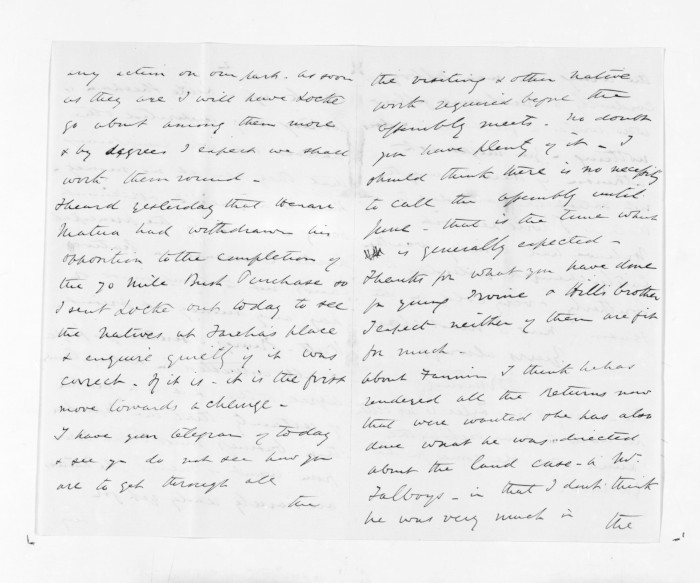 any action on our part. as soon
as they are I will have Locke
go about among them more
& by degrees I expect we shall
work them round -
I heard yesterday that
Matua had withdrawn his
opposition to the completion of
the 70 Mile Bush Purchase so
I sent Locke out today to see
the Natives at Tareha's place
& enquire quietly if it was
correct - if it is - it is the first
move towards a change -
I have your telegram of today
& see you do not see how you
are to get through all
the
the visiting & other Native
work required before the
assembly meets. no doubt
you have plenty of it - I
should think there is no necessity
to call the assembly until
June - that is the time which
is generally expected -
Thanks for what you have done
for young Irvine & Hill's brother
I expect neither of them are fit
for much -
About Fannin I think he has
rendered all the Returns now
that were wanted & he has also
done what he was directed
about the land case - a Mr.
Talboys - in that I dont think
he was very much in the